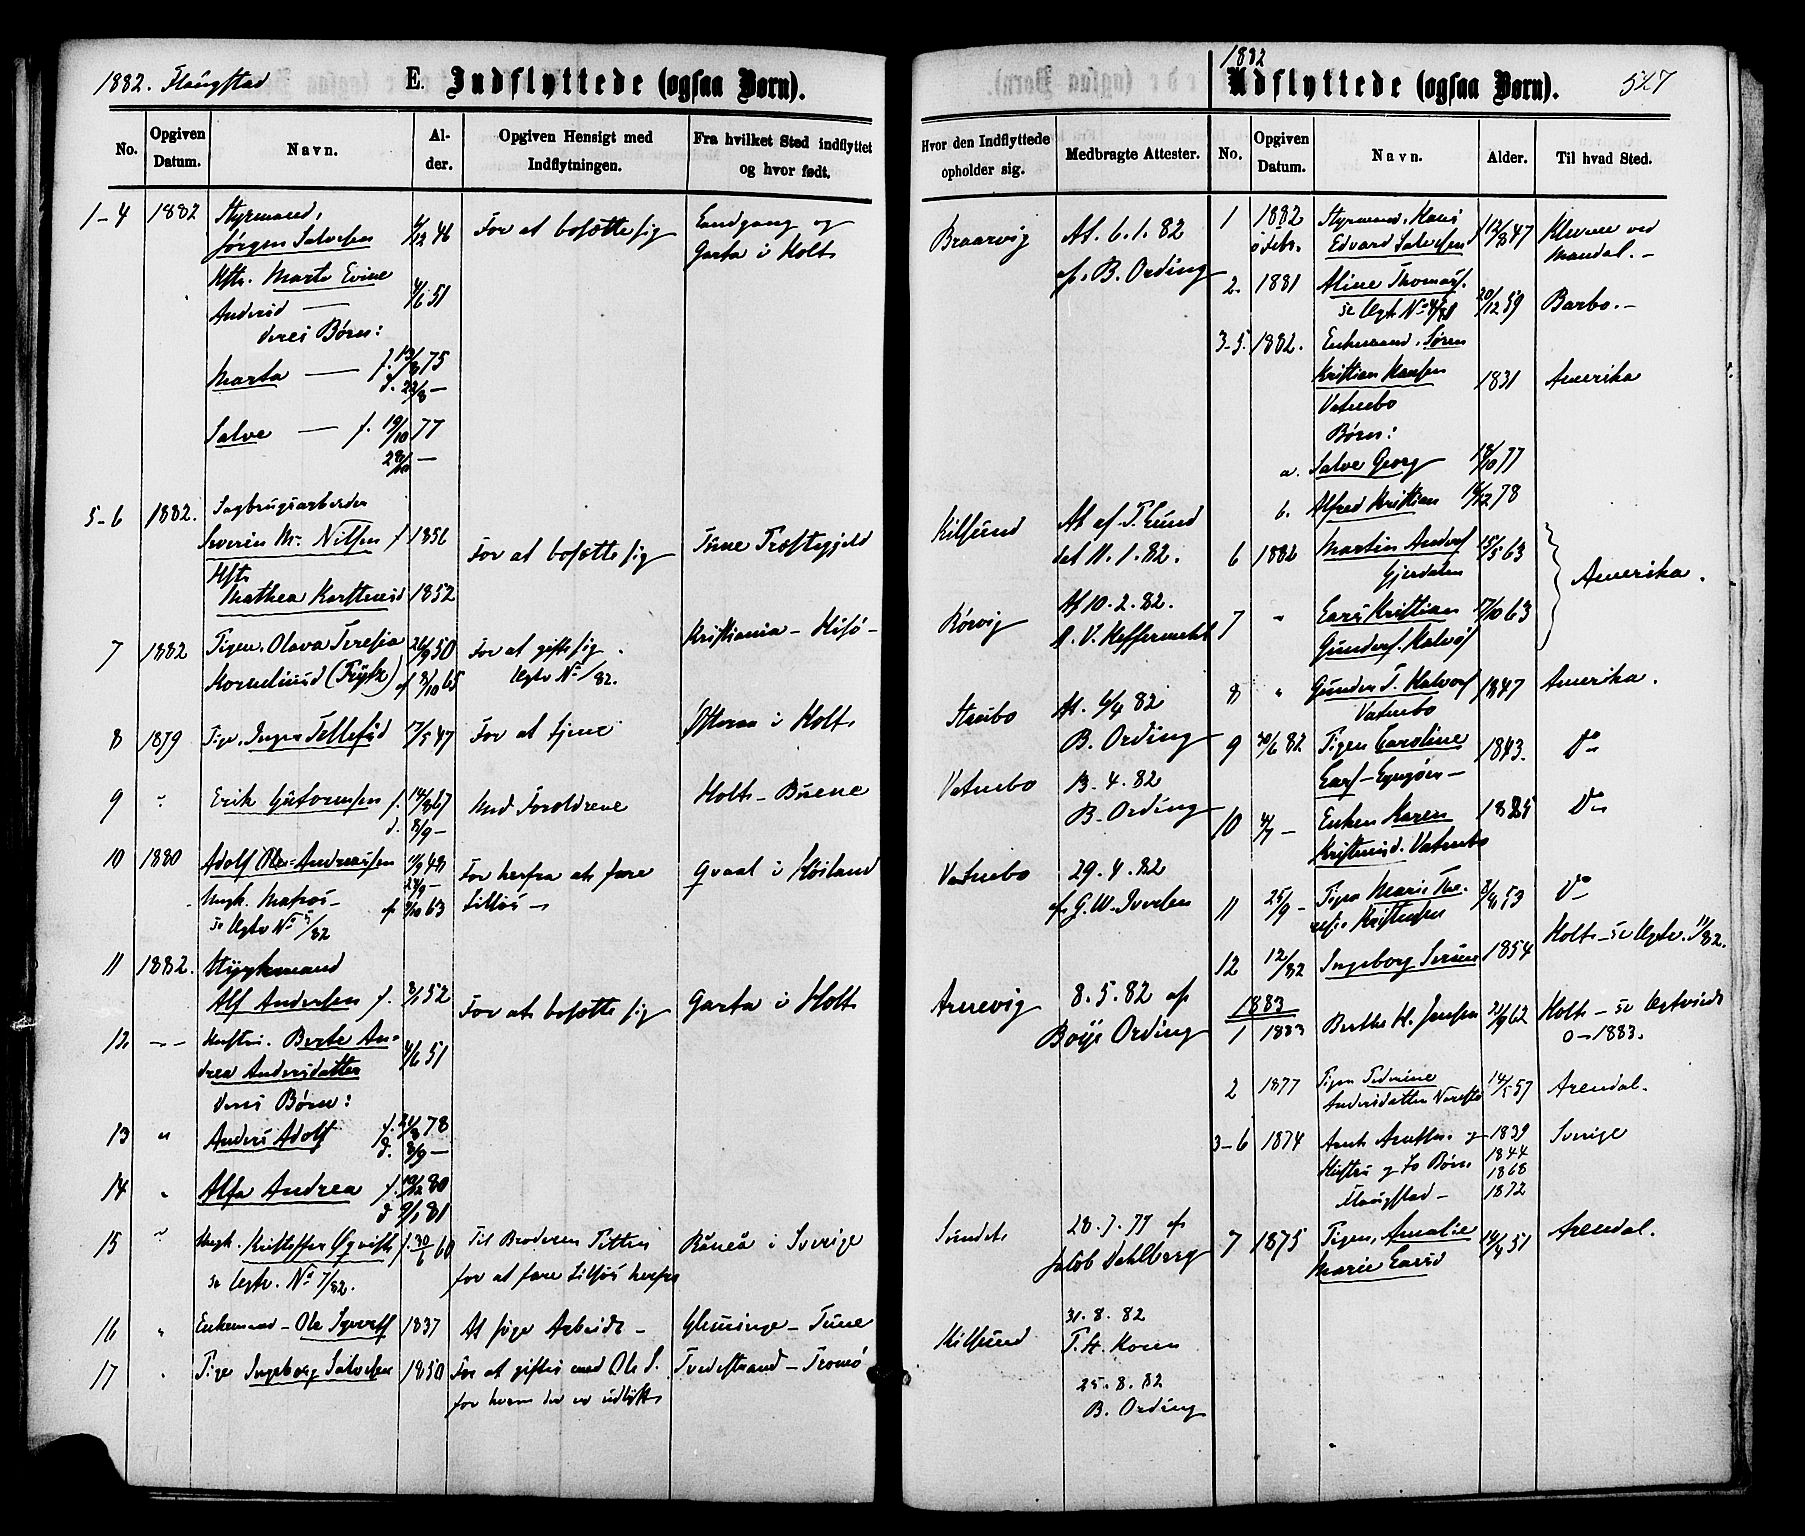 1882. Flaugstad
E. Indflyttede (ogsaa Born).
No.
Opgiven Datum.
Navn.
Alder.
Opgiven Hensigt med Indflytningen.
Fra hvilket Sted indflyttet og hvor født.
1-4 1882 Styrmand,
Jørgen Salvesen 46 For at bosætte sig Landgang og
Garta i Holt
Hstr. Marte Evine
Andersd — 4/6 51
deres Børn:
Marta — f. 13/8 75
d. 22/8 —
Salve — f. 19/10 77
28/10 —
5-6 1882. Sagbrugsarbeider
Severin M. Nilsen f 1856 For at bosætte sig Tune Præstegjeld
Hstr
Mathea Karstensd 1852
7 1882 Pigen Olava Teresia 26/9 50 For at gifte sig Kristiania - Hisø -
Korneliusd 8/10 65 Egtv No /82.
8 1879 Pige Inger Tellefsd 17/5 47 For at tjene i Holt
9 " Erik Guttormsen f. 14/8 67 Med Foroldrene Holt - Buene
d. 8/9 —
10 1880 Adolf Ole Andreassen 48 For herfra at fare Qvaal i Høiland
24/9 —
Ungk. Matros — 63 tilsøs —
se Egtv No 5/82
11 1882. Styrkmand
Alf Andersen f. 3/1 52 For at bosætte sig Garta i Holt
12 — Hustru. Berte An-
drea Andersdatter 4/6 51
deres Børn:
13 " Anders Adolf f. 24/8 78
d. 8/9 —
14 " Alfa Andrea f. 19/12 80
d 9/1 81
15 " Ungk. Kristoffer Øqvist f. 30/6 60 Til Broderen Råneå i Sverige
se Egtv. No 7/82. for at fare tilsøs herfra
16 " Enkemand - Ole Syvers 1837 At søge Arbeide - Glemminge - Tune
17 " Pige Ingeborg Salvesen 1850 For at giftes med Ole S. Tvedestrand - Tromø
for hvem der er udlyst
1882
Udflyttede (ogsaa Born). 527
Hvor den Indflyttede opholder sig.
Medbragte Attester.
No.
Opgiven Datum.
Navn.
Alder.
Til hvad Sted.
Braarvig At. 6.1.82
af B. Ording
Kilsund At af T. Lund
dat 11.1.82.
Rørvig At 10.2.82.
Strubo At. 6/4 82
B. Ording
Vatnebo 13.4.82
B. Ording
Vatnebo 29.4.82
af G. W. Iversen
Arrevig 8.5.82 af
Boije Ording
Sundet 28.7.77 af
Jacob Dahlberg
Kilsund 31.8.82
T. H. Koren
25.8.82
B. Ording
1 1882 Styrmand Hans
Edvard Salvesen f 12/8 47 Klevene ved
Mandal. —
2. 1881 Aline Thomas.
20/12 59 Barbo. —
3-5. 1882. Enkemand. Søren
Kristian Hansen 1831 Amerika
Vatnebo
Børn:
a. Salve Georg 19/10 77
b. Alfred Kristian 16/12 78
6 1882 Martin Anders 15/5 63
Gjerdalen Amerika.
7 " Lars Kristian 17/10 63
Gunders. Halvøs
8 " Gunder T. Halvors 1847 Amerika.
Vatnebo
9 30/6 82 Pigen Caroline 1843. Do
Lars - Lyngøer —
10 4/7 — Enken Karen 1825 Do
Kristensd. Vatnebo
11 25/9 — Pigen Marie The-
resie Kristensen 53 Do
12 12/82 Ingeborg 1854 Holt - se Egtv. 11/82.
1883
1 1883 Berthe H. Jensen 21/9 62 Holt - se Egtviede
o - 1883.
2 1877 Pigen Severine
Andersdatter 14/5 57 Arendal.
3-6 1874 1839 Sverige
Hustru og to Børn 1844
1868
Flaugstad — 1872
7 1875 Pigen, Amalie
Marie Larsd 14/4 51 Arendal.